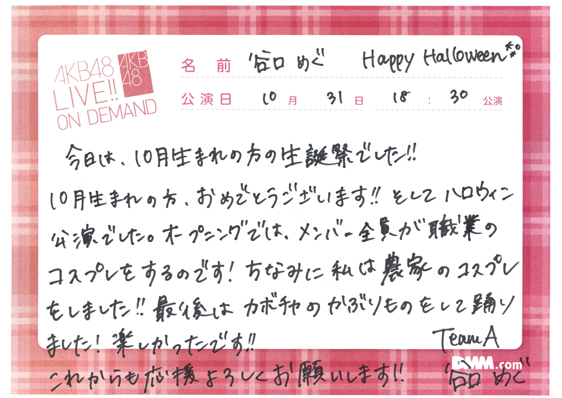 AKB48
LIVE!!
ON DEMAND
AKB
48
名 前 谷口 めぐ Happy Halloween
公演日 10 月 31 日 18 : 30 公演
今日は、10月生まれの方の生誕祭でした!!
10月生まれの方、おめでとうございます!! そしてハロウィン
公演でした。オープニングでは、メンバー全員が職業の
コスプレをするのです! ちなみに私は農家のコスプレ
をしました!! 最後はカボチャのかぶりものをして踊り
ました! 楽しかったです!!
TeamA
DMM.com
これからも応援よろしくお願いします!! 谷口 めぐ